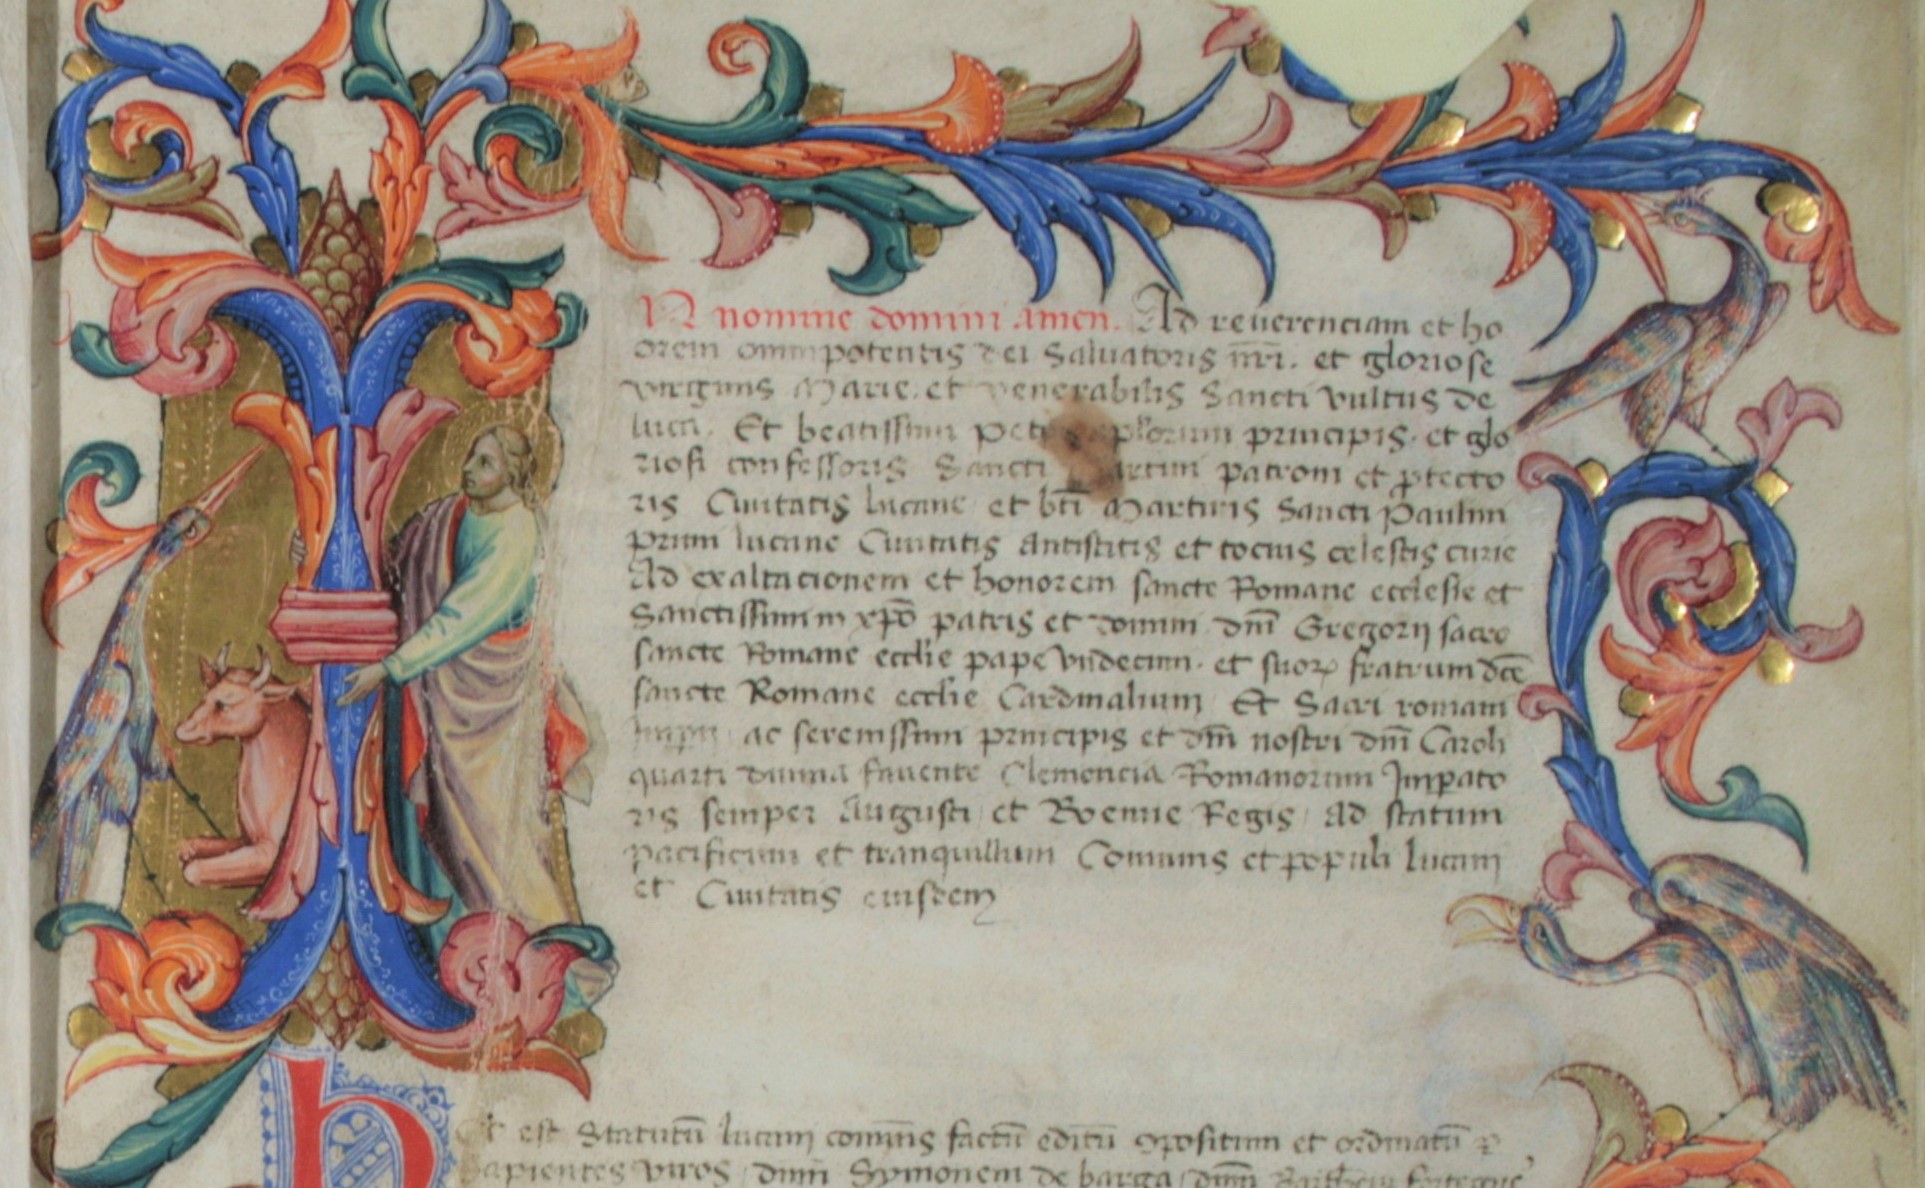 IN nomine domini amen. Ad reuerenciam et ho
orem omnipotentis dei Saluatoris nr̄i. et gloriose
virginis Marie. et venerabilis Sancti vultus de
luca. Et beatissimi Petri apl̄orum principis. et glo
riosi confessoris Sancti Martini patroni et ꝓtecto
ris Ciuitatis lucane et bt̄i Martiris Sancti Paulini
primi lucane Ciuitatis Antistitis et tocius celestis curie
Ad exaltacionem et honorem sancte Romane ecclesie et
Sanctissimi in xp̄o patris et domini dn̄i Gregorij sacro
sancte Romane eccl̄ie pape vndecimi. et suoꝝ fratrum dc̄e
sancte Romane eccl̄ie Cardinalium Et Sacri romani
Imperij ac serenissimi principis et dn̄i nostri dn̄i Caroli
quarti diuina fauente Clemencia Romanorum Imꝑato
ris semper Augusti et Boemie Regis Ad statum
pacificum et tranquillum Comunis et populi lucani
et Ciuitatis eiusdem
Hoc est Statutū lucani comūis factū editū ꝯpositum et ordinatū ꝑ
sapientes viros dn̄m Symonem de barga dn̄m